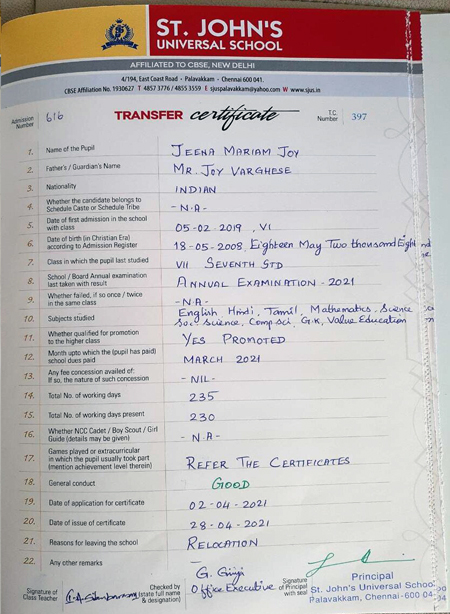 ST. JOHN'S
UNIVERSAL SCHOOL
AFFILIATED TO CBSE, NEW DELHI
4/194, East Coast Road - Palavakkam - Chennai 600 041.
CBSE Affiliation No. 1930627 T 4857 3776 / 4855 3559 E sjuspalavakkam@yahoo.com W www.sjus.in
Admission Number 616 TRANSFER certificate T.C. Number 397
1. Name of the Pupil JEENA MARIAM JOY
2. Father's / Guardian's Name MR. JOY VARGHESE
3. Nationality INDIAN
4. Whether the candidate belongs to Schedule Caste or Schedule Tribe - N.A -
5. Date of first admission in the school with class 05-02-2019, VI
6. Date of birth (in Christian Era) according to Admission Register 18-05-2008, Eighteen May Two thousand Eight
7. Class in which the pupil last studied VII SEVENTH STD
8. School / Board Annual examination last taken with result ANNUAL EXAMINATION - 2021
9. Whether failed, if so once / twice in the same class - N.A -
10. Subjects studied English, Hindi, Tamil, Mathematics, Science
Soc. Science, Comp.sci, G.K, Value Education
11. Whether qualified for promotion to the higher class YES PROMOTED
12. Month upto which the (pupil has paid) school dues paid MARCH 2021
13. Any fee concession availed of: If so, the nature of such concession - NIL -
14. Total No. of working days 235
15. Total No. of working days present 230
16. Whether NCC Cadet / Boy Scout / Girl Guide (details may be given) - N.A -
17. Games played or extracurricular in which the pupil usually took part (mention achievement level therein) REFER THE CERTIFICATES
18. General conduct GOOD
19. Date of application for certificate 02-04-2021
20. Date of issue of certificate 28-04-2021
21. Reasons for leaving the school RELOCATION
22. Any other remarks —
Signature of Class Teacher
Checked by (state full name & designation) Office Executive
Signature of Principal with seal
Principal
St. John's Universal School
Palavakkam, Chennai-600 04